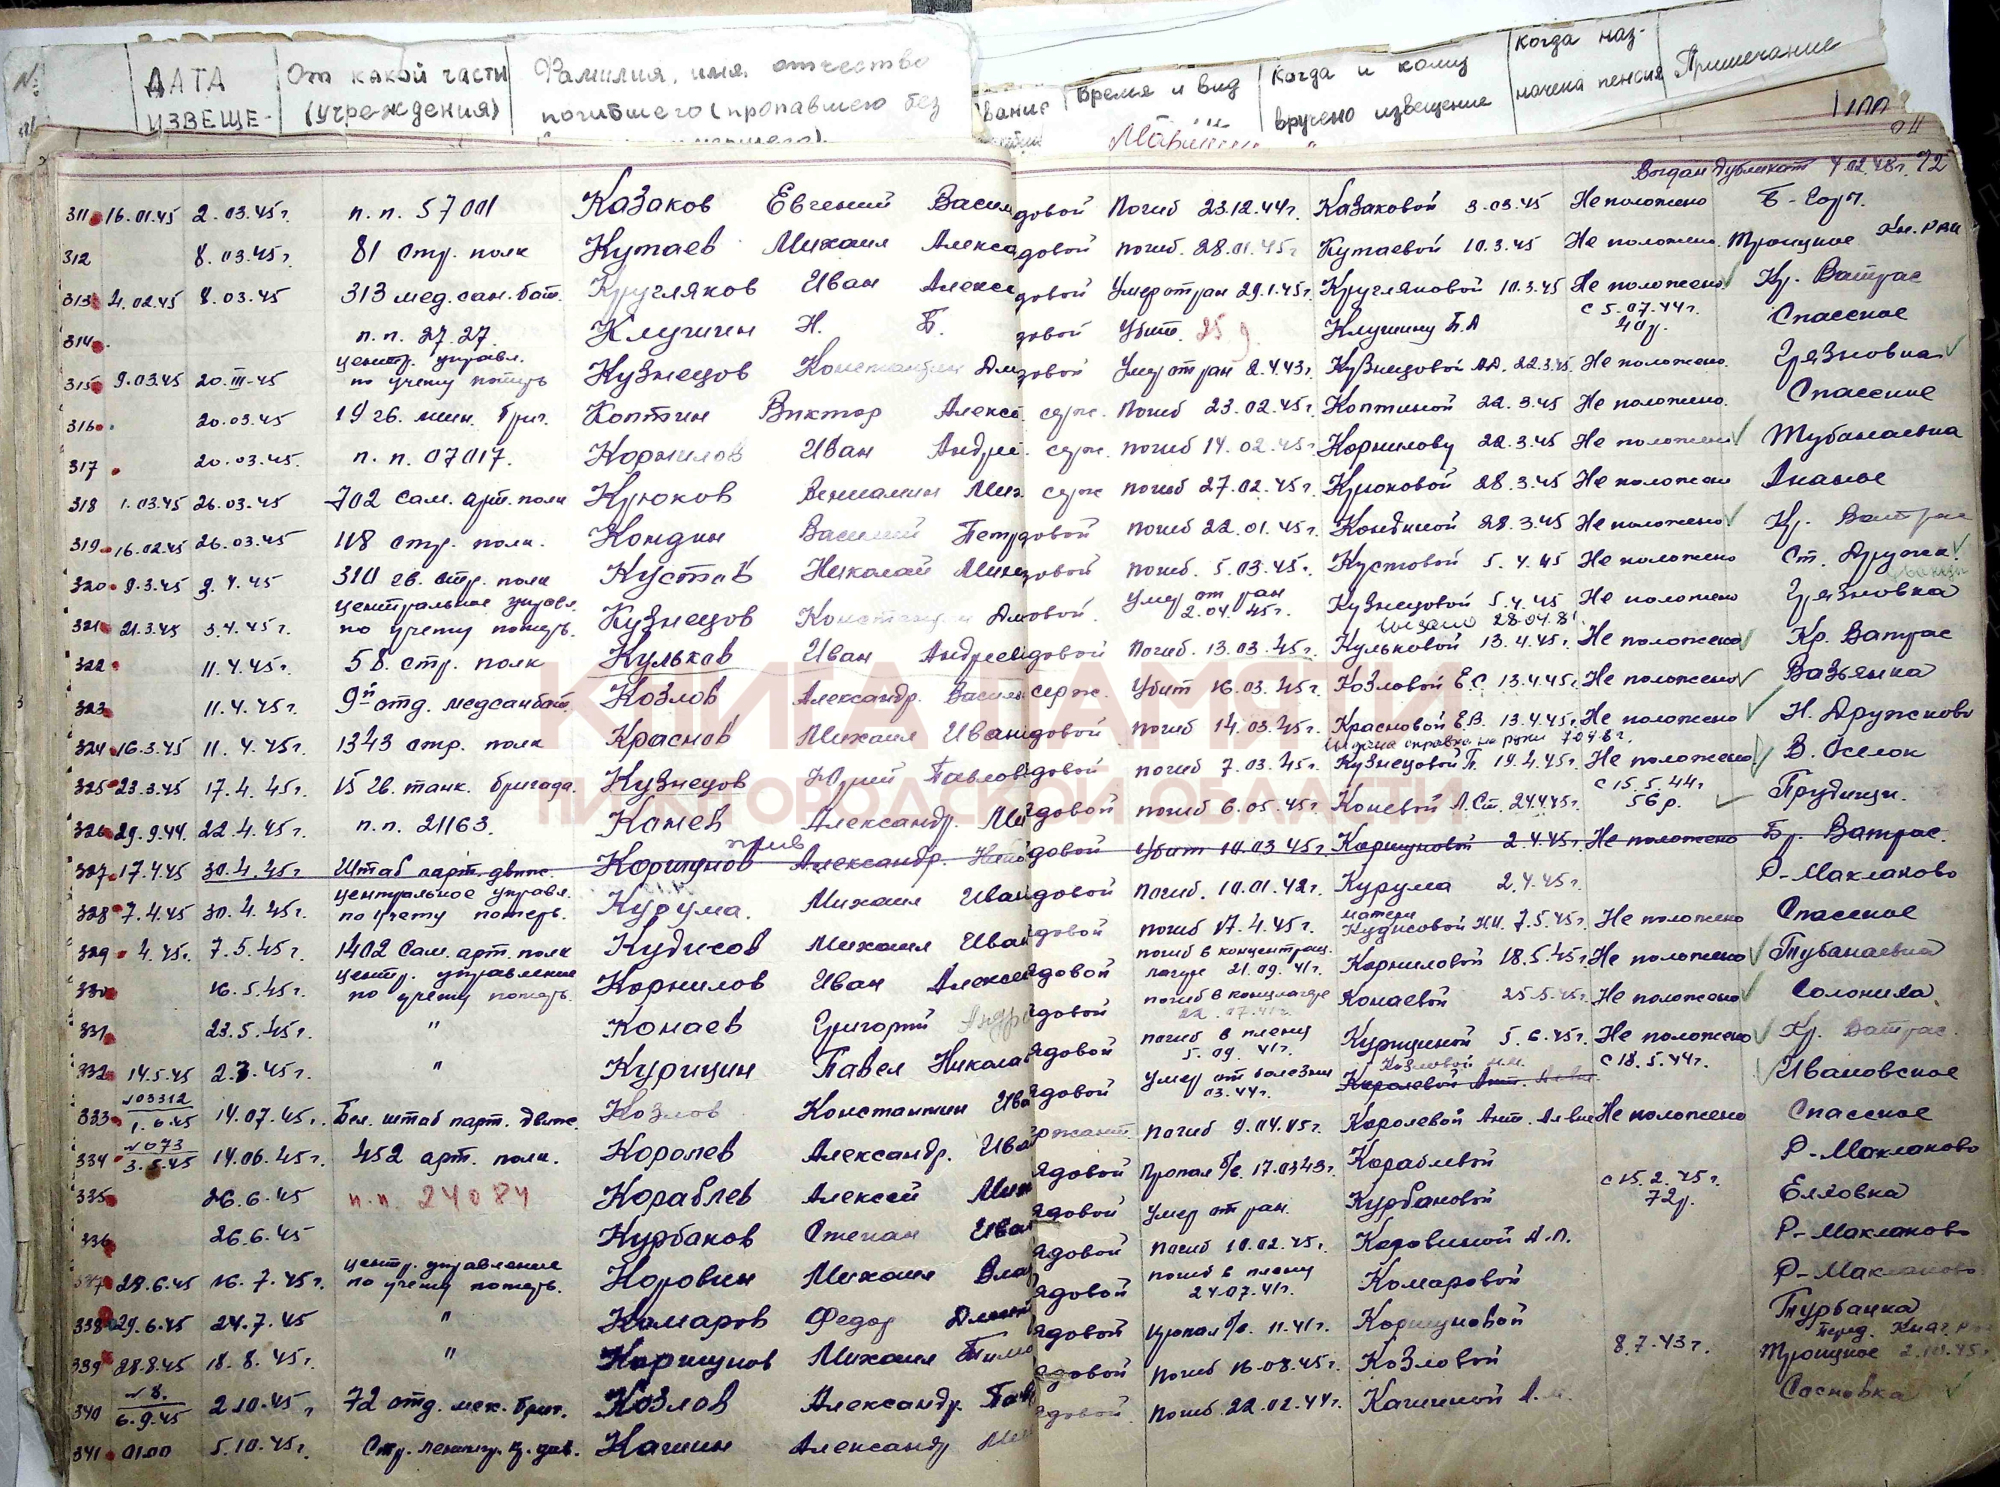 № ДАТА ИЗВЕЩЕ- От какой части (учреждения) Фамилия, имя, отчество погибшего (пропавшего без
время и вид когда и кому вручено извещение когда назначена пенсия Примечание
дубликат 4.02.48г. 72
311 16.01.45 2.03.45г. п.п. 57001 Казаков Евгений Васил довой Погиб 23.12.44г. Казаковой 3.03.45 Не положено
312 8.03.45г. 81 стр. полк Кутаев Михаил Алекса довой погиб. 28.01.45г Кутаевой 10.3.45 Не положено Троицкое
313 4.02.45 8.03.45 313 мед.сан.бат. Кругляков Иван Алекс довой Умер от ран 29.1.45г. Кругляковой 10.3.45 Не положено Кр. Ватрас
314 п.п. 27.27. Клушин Н. Б. довой Убит. Клушину Б.А с 5.07.44г. 40р. Спасское
315 9.03.45 20.III-45 центр. управл. по учету потерь Кузнецов Константин довой Умер от ран 2.4.43г. Кузнецовой 22.3.45 Не положено. Грязновка
316 20.03.45 19 гв. мин. бриг. Коптин Виктор Алекса серж. Погиб 23.02.45г. Коптиной 22.3.45 Не положено. Спасское
317 20.03.45. п.п. 07017. Корнилов Иван Андрее серж. погиб 14.02.45г Корнилову 22.3.45 Не положено Тубанаевка
318 1.03.45 26.03.45 702 сам. арт. полк Крюков Вениамин Мих серж погиб 27.02.45г. Крюковой 28.3.45 Не положено Ананье
319 16.02.45 26.03.45 118 стр. полк. Кондин Василий Петр довой погиб 22.01.45г. Кондиной 28.3.45 Не положено Кр. Ватрас
320 9.3.45 3.4.45 310 гв. стр. полк Кустов Николай довой погиб. 5.03.45г. Кустовой 5.4.45 Не положено
321 21.3.45 3.4.45г. центральное управл. по учету потерь. Кузнецов Константин довой. умер от ран 2.04.45г. Кузнецовой 5.4.45 Не положено Грязновка
322 11.4.45г. 58. стр. полк Кульков Иван Андреев довой Погиб. 13.03.45г. Кульковой 13.4.45г. Не положено Кр. Ватрас
323 11.4.45г. 9й отд. медсанбат. Козлов Александр. Василь серж. Убит 16.03.45г. Козловой Е.С 13.4.45г. Не положено Вазьянка
324 16.3.45 11.4.45г. 1343 стр. полк Краснов Михаил Иван довой погиб 14.03.45г. Красновой Е.В. 13.4.45г. Не положено
325 23.3.45 17.4.45г. 15 гв. танк. бригада. Кузнецов Юрий Павлов довой погиб 7.03.45г. Кузнецовой 19.4.45г. Не положено В. Оселок
326 29.9.44. 22.4.45г. п.п. 21163. Конев Александр. Ми довой погиб 6.05.45г. Коневой 24.4.45г. с 15.5.44г 56р. Прудищи.
327 17.4.45 30.4.45г Штаб парт. движ. Коршунов Александр. довой Убит 10.03.45г. Коршуновой 2.4.45г. Не положено Бр. Ватрас.
328 7.4.45 30.4.45г. центральное управл. по учету потерь. Курума. Михаил Иван довой Погиб. 10.01.42г. Курума 2.4.45г. Р-Маклаково
329 4.45г. 7.5.45г. 1402 сам. арт. полк Кудисов Михаил Иван довой погиб 17.4.45г. матери Кудисовой Н.И. 7.5.45г. Не положено Спасское
330 16.5.45г. центр. управление по учету потерь. Корнилов Иван Алексе ядовой погиб в концентрац. лагере 21.09.41г. Корниловой 18.5.45г. Не положено Тубанаевка
331 23.5.45г. " Конаев Григорий Андре ядовой погиб в концлагере 22.07.41г. Конаевой 25.5.45г. Не положено Солониха
332 14.5.45 2.7.45г. " Курицин Павел Никола ядовой погиб в плену 5.09.41г. Курициной 5.6.45г. Не положено Кр. Ватрас.
333 №03312 1.6.45 14.07.45г. Бел. штаб парт. движ. Козлов Константин Ива ядовой Умер от болезни 03.44г. Козловой Королевой Ант. с 18.5.44г. Ивановское
334 №073 3.5.45 14.06.45г. 452 арт. полк. Королев Александр. Ива ржант. Погиб 9.04.45г. Королевой Ант. Не положено Спасское
335 26.6.45 п.п. 24084 Кораблев Алексей Мих ядовой Пропал б/в. 17.03.43г. Кораблевой Р-Маклаково
336 26.6.45 Курбаков Степан Иван ядовой Умер от ран. Курбановой с 15.2.45г. 72р. Елховка
337 28.6.45 16.7.45г. центр. управление по учету потерь. Коровин Михаил Вла ядовой Погиб 10.02.45г. Коровиной А.П. Р-Маклаково
338 29.6.45 24.7.45 " Комаров Федор Дмит ядовой погиб в плену 24.07.41г. Комаровой Р-Маклаково
339 28.8.45 18.8.45г. " Коршунов Михаил Тимо ядовой пропал б/в. 11.41г. Коршуновой Турбанка
340 №8. 6.9.45 2.10.45г 72 отд. мех. бриг. Козлов Александр. Пав ядовой Погиб 16.08.45г. Козловой 8.7.43г. Троицкое
341 5.10.45г. Кашин Александр Ми ядовой. Погиб. 22.02.44г. Кашиной Сосновка
КНИГА ПАМЯТИ
НИЖЕГОРОДСКОЙ ОБЛАСТИ